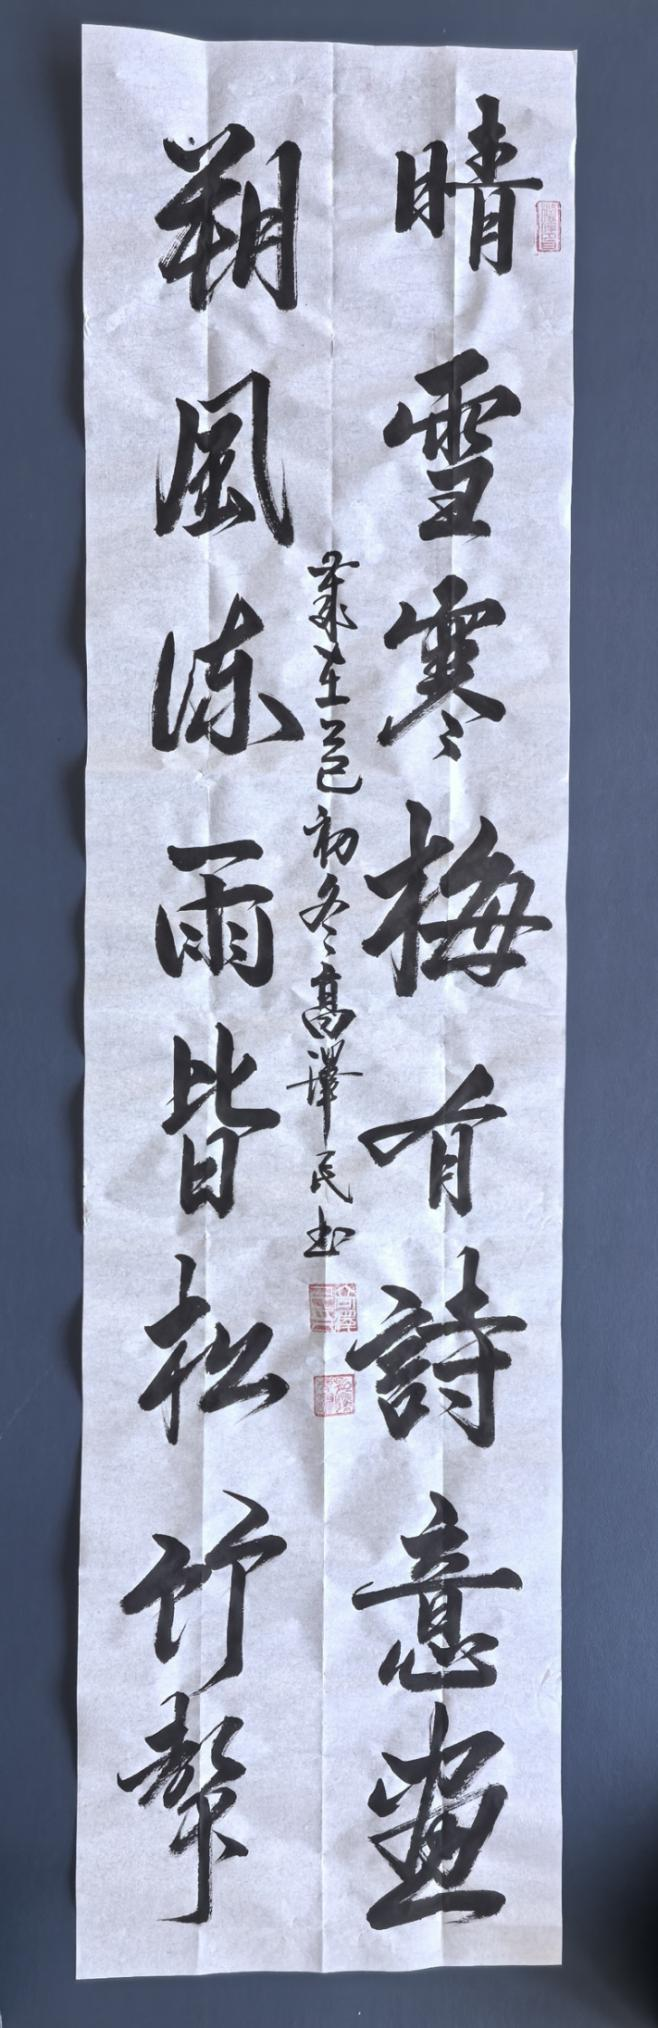 晴雪寒梅有詩意画
朔風涑雨皆松竹聲
歲在乙巳初冬高澤民书